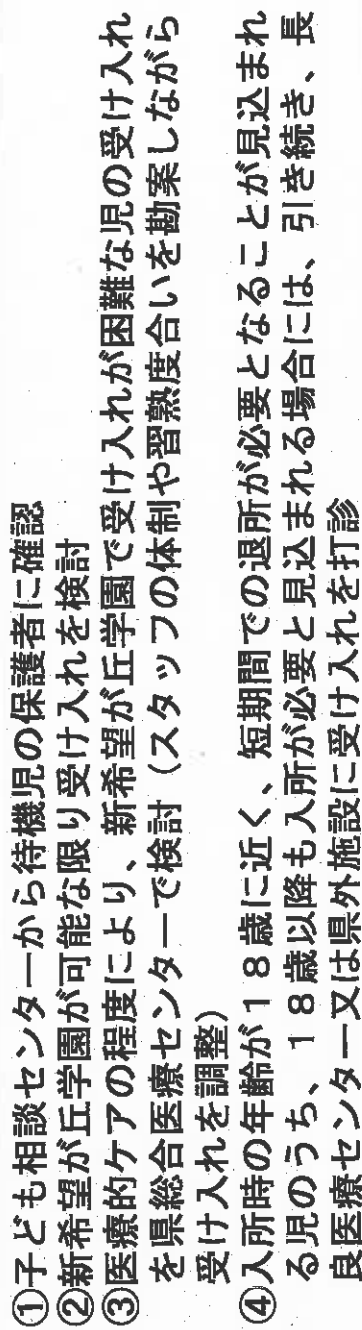 ①子ども相談センターから待機児の保護者に確認
②新希望が丘学園が可能な限り受け入れを検討
③医療的ケアの程度により、新希望が丘学園で受け入れが困難な児の受け入れ
を県総合医療センターで検討（スタッフの体制や習熟度合いを勘案しながら
受け入れを調整）
④入所時の年齢が１８歳に近く、短期間での退所が必要となることが見込まれ
る児のうち、１８歳以降も入所が必要と見込まれる場合には、引き続き、長
良医療センター又は県外施設に受け入れを打診